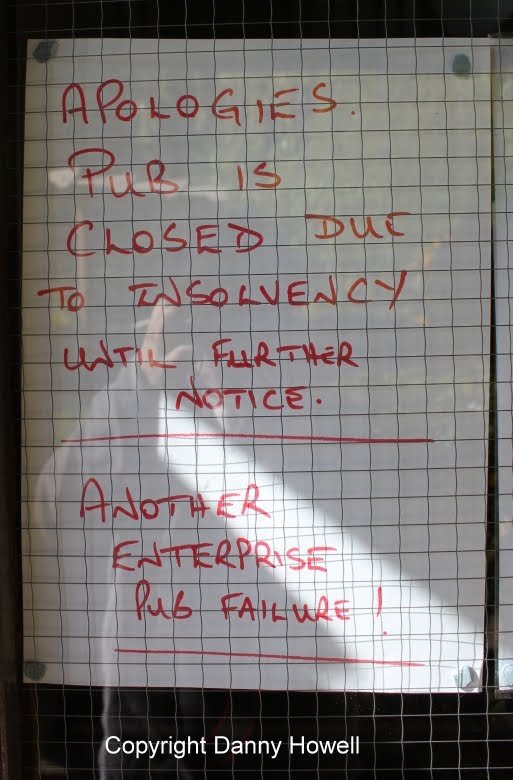 APOLOGIES.
PUB IS
CLOSED DUE
TO INSOLVENCY
UNTIL FURTHER
NOTICE.
ANOTHER
ENTERPRISE
PUB FAILURE!
Copyright Danny Howell